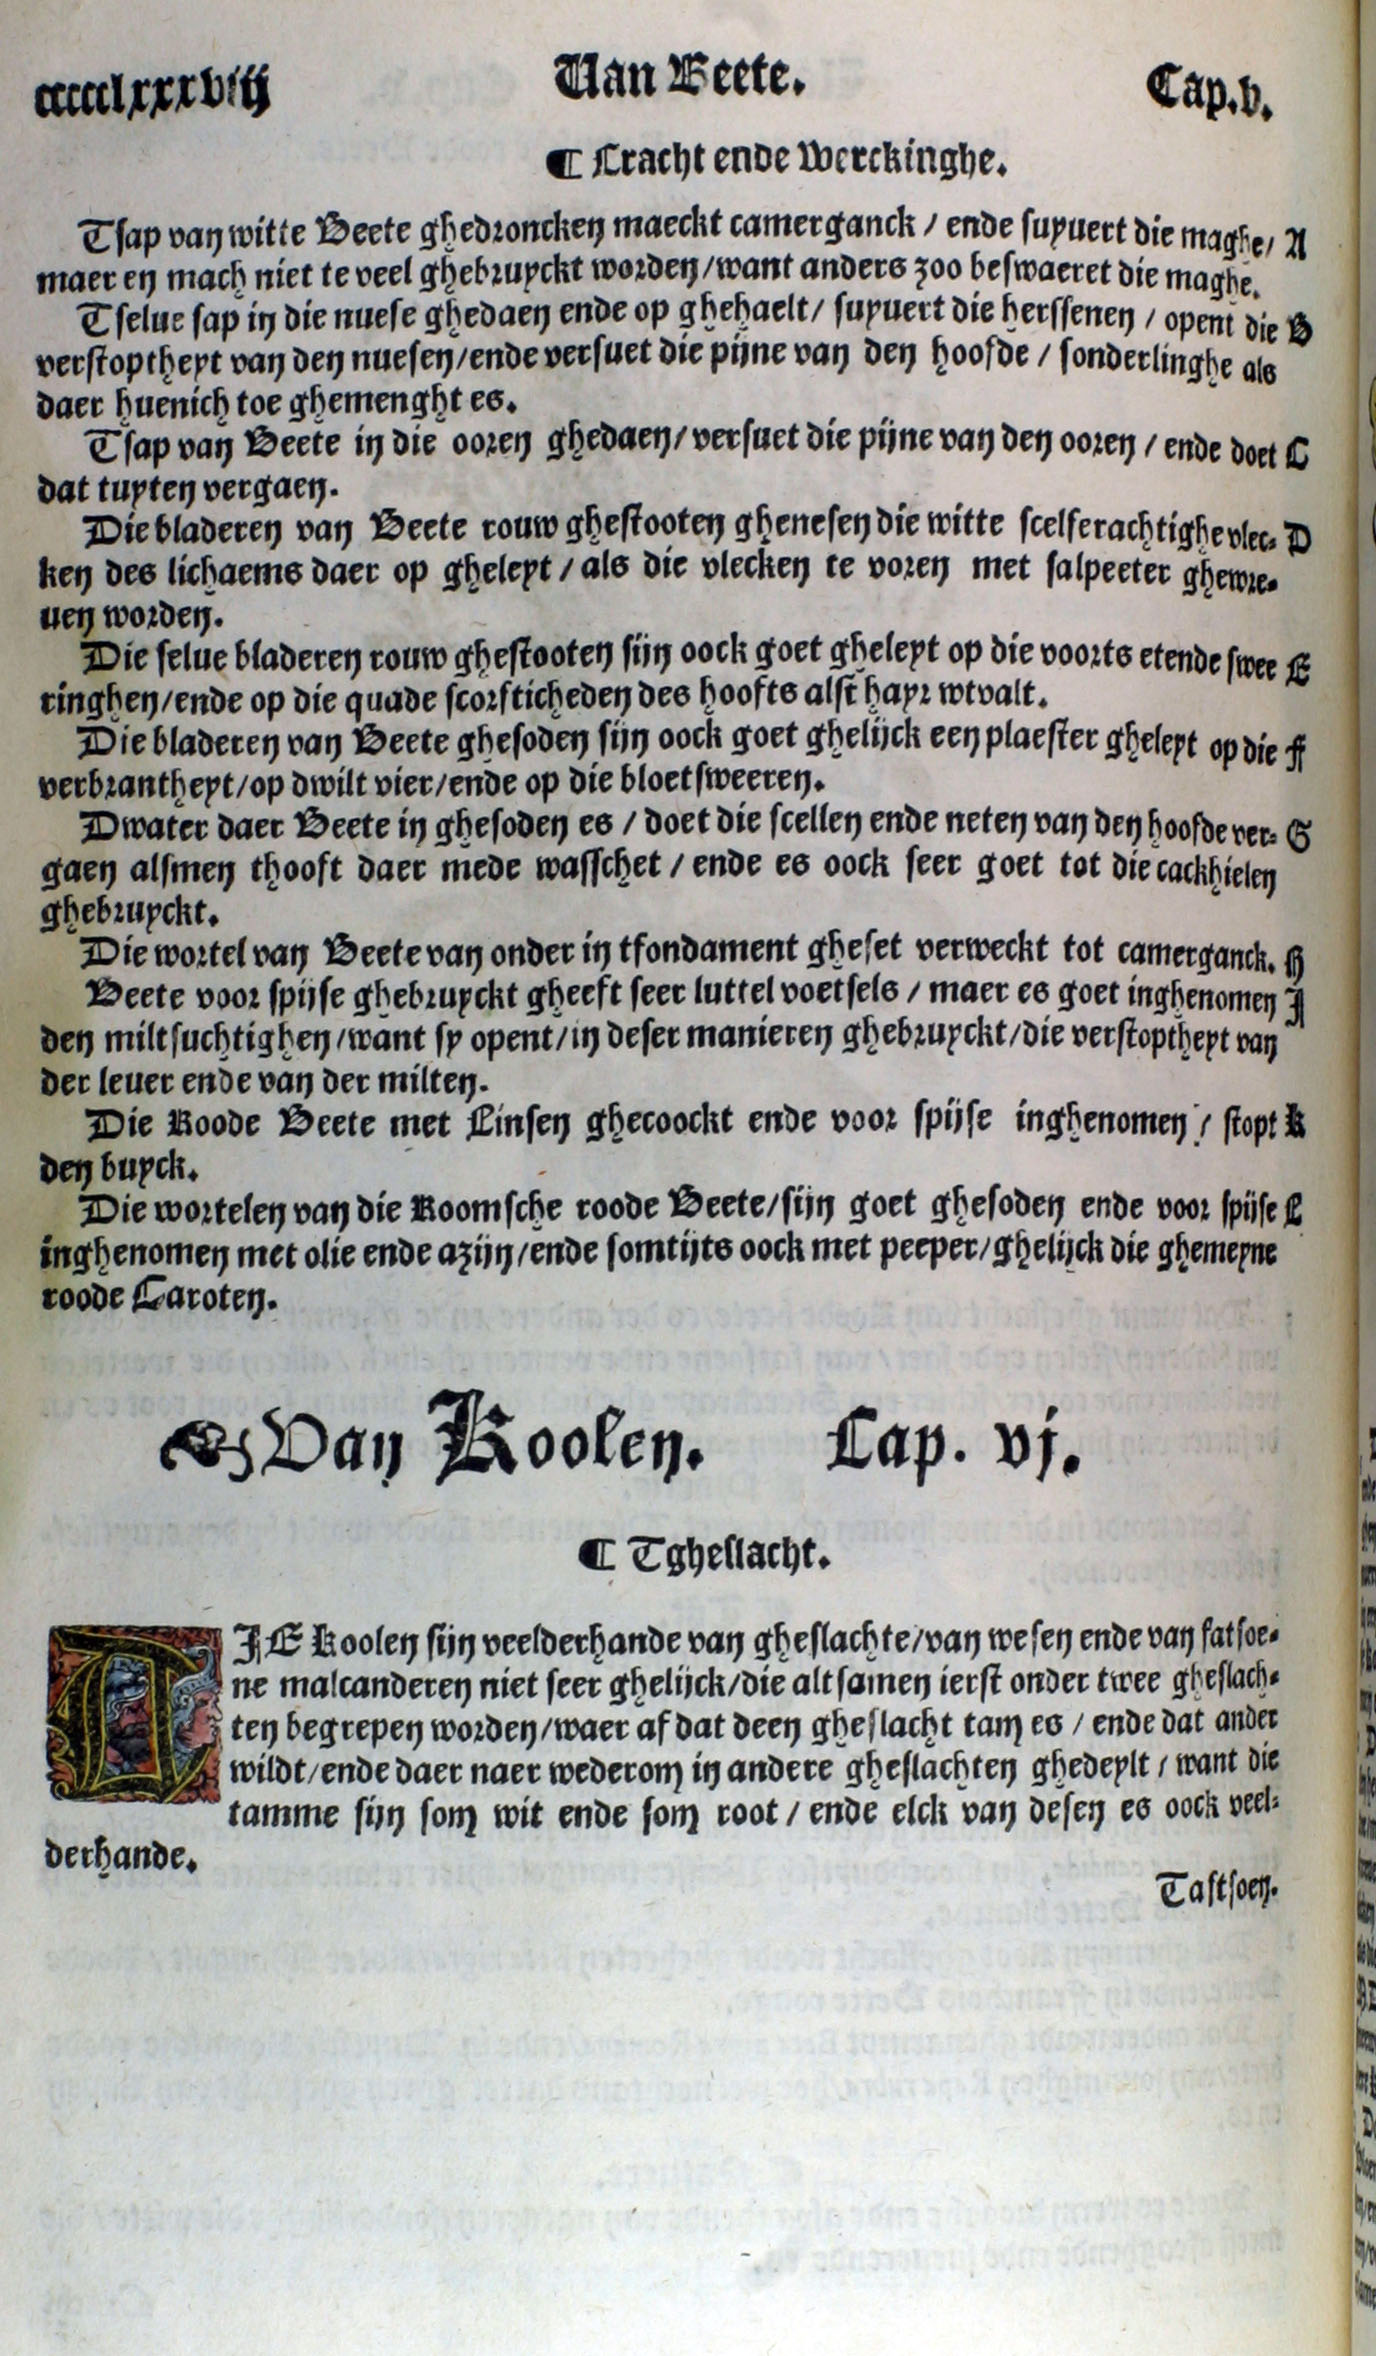 ccccclxxxviij Van Beete. Cap.v.
¶ Cracht ende Werckinghe.
Tsap van witte Beete ghedroncken maeckt camerganck / ende suyuert die maghe / A
maer en mach niet te veel ghebruyckt worden / want anders zoo beswaeret die maghe.
Tselue sap in die nuese ghedaen ende op ghehaelt / suyuert die herssenen / opent die B
verstoptheyt van den nuesen / ende versuet die pijne van den hoofde / sonderlinghe als
daer huenich toe ghemenght es.
Tsap van Beete in die ooren ghedaen / versuet die pijne van den ooren / ende doet C
dat tuyten vergaen.
Die bladeren van Beete rouw ghestooten ghenesen die witte scelferachtighe vlec- D
ken des lichaems daer op gheleyt / als die vlecken te voren met salpeeter ghewre-
uen worden.
Die selue bladeren rouw ghestooten sijn oock goet gheleyt op die voorts etende swee E
ringhen / ende op die quade scorfticheden des hoofts alst hayr wtvalt.
Die bladeren van Beete ghesoden sijn oock goet ghelijck een plaester gheleyt op die F
verbrantheyt / op dwilt vier / ende op die bloetsweeren.
Dwater daer Beete in ghesoden es / doet die scellen ende neten van den hoofde ver- G
gaen alsmen thooft daer mede wasschet / ende es oock seer goet tot die cackhielen
ghebruyckt.
Die wortel van Beete van onder in tfondament gheset verweckt tot camerganck. H
Beete voor spijse ghebruyckt gheeft seer luttel voetsels / maer es goet inghenomen I
den miltsuchtighen / want sy opent / in deser manieren ghebruyckt / die verstoptheyt van
der leuer ende van der milten.
Die Roode Beete met Linsen ghecoockt ende voor spijse inghenomen / stopt K
den buyck.
Die wortelen van die Roomsche roode Beete / sijn goet ghesoden ende voor spijse L
inghenomen met olie ende azijn / ende somtijts oock met peeper / ghelijck die ghemeyne
roode Caroten.
Van Koolen. Cap. vj.
¶ Tgheslacht.
DIE Koolen sijn veelderhande van gheslachte / van wesen ende van fatsoe-
ne malcanderen niet seer ghelijck / die altsamen ierst onder twee gheslach-
ten begrepen worden / waer af dat deen gheslacht tam es / ende dat ander
wildt / ende daer naer wederom in andere gheslachten ghedeylt / want die
tamme sijn som wit ende som root / ende elck van desen es oock veel-
derhande.
Tfatsoen.